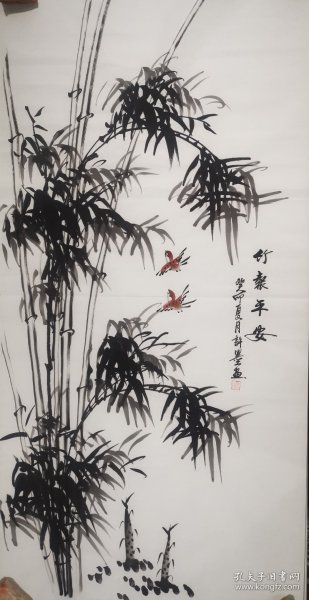 竹報平安
癸卯夏月許
孔夫子旧书网
www.kongfz.com